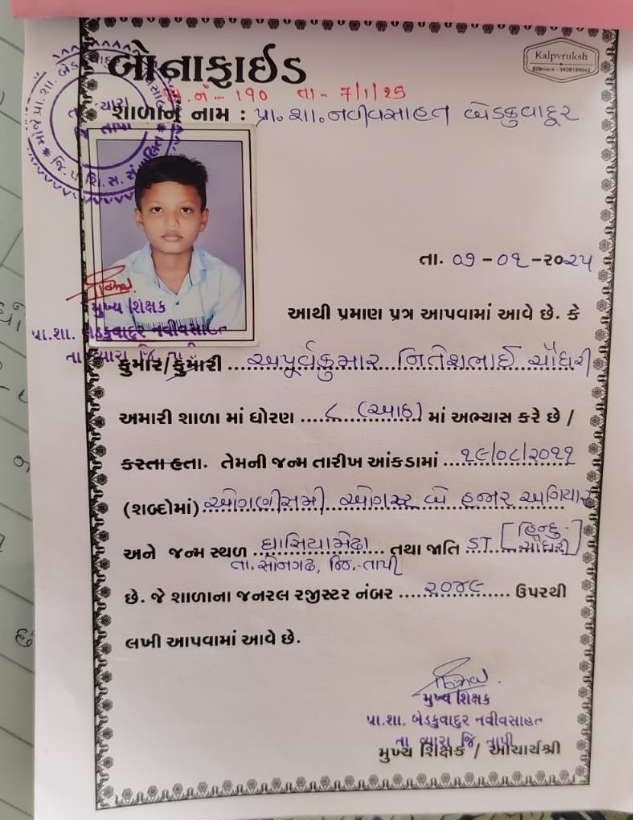 બોનાફાઈડ
Kalpvruksh
જા.નં - ૧૯૦ તા - 7/1/25
શાળાનું નામ : પ્રા.શા.નવીવસાહત બેડકુવાદૂર
તા. ૦૭ - ૦૧ -૨૦૨૫
આથી પ્રમાણ પત્ર આપવામાં આવે છે. કે
મુખ્ય શિક્ષક
પ્રા.શા. બેડકુવાદુર નવીવસાહત
તા વ્યારા જિ
કુમાર/કુમારી ...અપૂર્વકુમાર નિતેશભાઈ ચૌધરી
અમારી શાળા માં ધોરણ ......૮ (આઠ)...... માં અભ્યાસ કરે છે /
કરતા હતા. તેમની જન્મ તારીખ આંકડામાં ...૧૯/૦૮/૨૦૧૧
(શબ્દોમાં) ઓગણીસમી ઓગસ્ટ બે હજાર અગિયાર
અને જન્મ સ્થળ ...ઘાસિયામેઢા... તથા જાતિ ST...[હિન્દુ-ચૌધરી]
તા.સોનગઢ, જિ.-તાપી
છે. જે શાળાના જનરલ રજીસ્ટર નંબર ......૨૦૪૯...... ઉપરથી
લખી આપવામાં આવે છે.
મુખ્ય શિક્ષક
પ્રા.શા. બેડકુવાદુર નવીવસાહત
તા વ્યારા જિ તાપી
મુખ્ય શિક્ષક / આચાર્યશ્રી